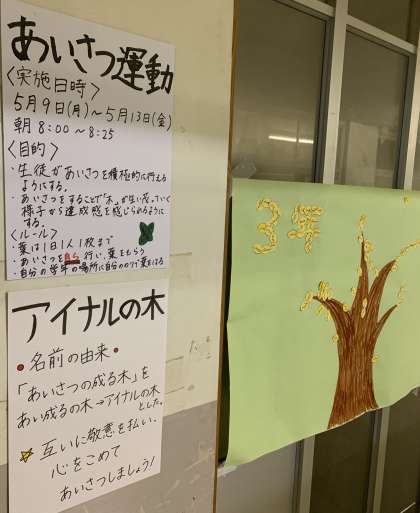 あいさつ運動
〈実施日時〉
5月9日(月)～5月13日(金)
朝 8:00～8:25
〈目的〉
・生徒があいさつを積極的に行える
ようにする。
・あいさつをすることで「木」が生い茂っていく
様子から達成感を感じられるように
する。
〈ルール〉
・葉は1日1人1枚まで
・あいさつを自ら行い、葉をもらう
・自分の学年の場所に自分ののりで葉をはる
アイナルの木
名前の由来
「あいさつの成る木」を
あい成るの木→アイナルの木
とした。
互いに敬意を払い、
心をこめて
あいさつしましょう!
3年